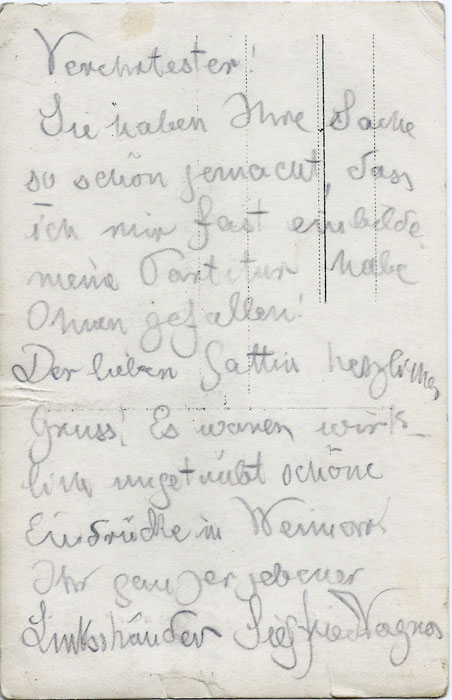 Verehrtester!
Sie haben Ihre Sache
so schön gemacht, dass
ich mir fast einbilde
meine Partitur habe
Ihnen gefallen!
Der lieben Gattin herzlichen
Gruss! Es waren wirk-
lich ungetrübt schöne
Eindrücke in Weimar.
Ihr ganz ergebener
Linkshänder Siegfried Wagner